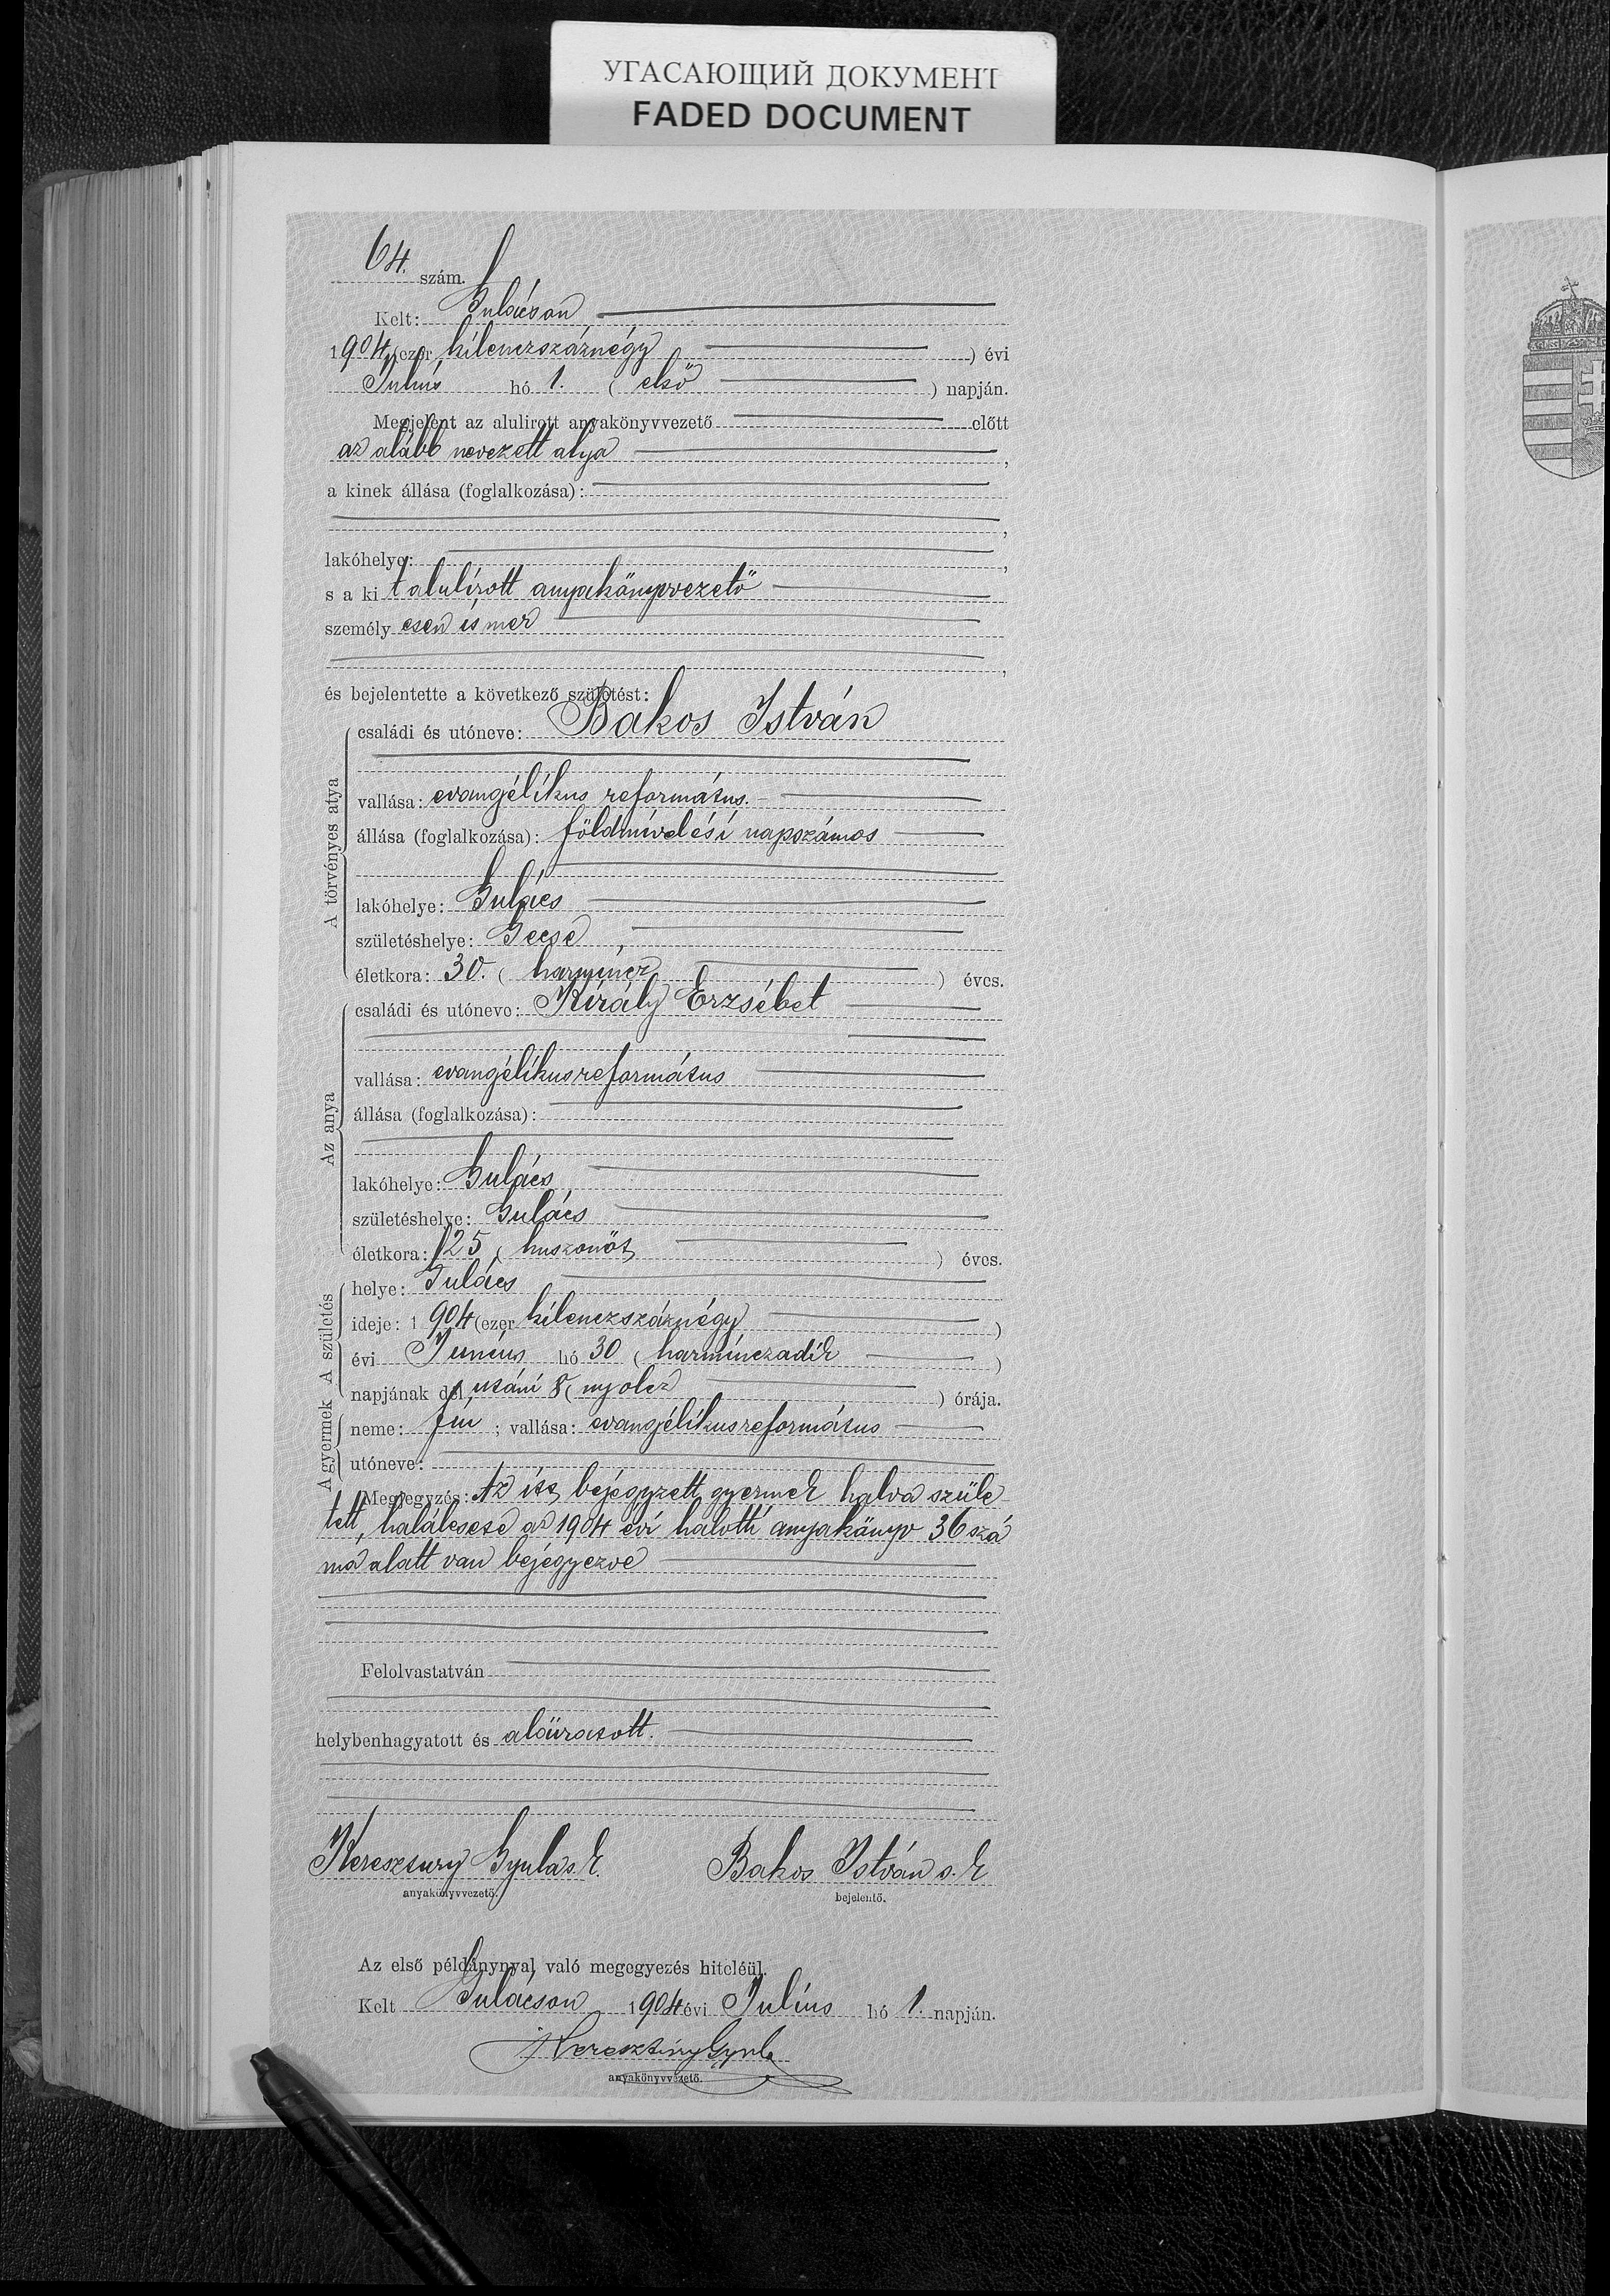 УГАСАЮЩИЙ ДОКУМЕНТ
FADED DOCUMENT
64. szám.
Kelt: Gulácson
1904 (ezer kilenczszáznégy ) évi
Julius hó 1. ( első ) napján.
Megjelent az alulirott anyakönyvvezető előtt
az alább nevezett atya ,
a kinek állása (foglalkozása):
,
lakóhelye: ,
s a ki t alulírott anyakönyvvezető
személy esen ismer
,
és bejelentette a következő születést:
A törvényes atya
családi és utóneve: Bakos István
vallása: evangélikus református.
állása (foglalkozása): földmívelési napszámos
lakóhelye: Gulács
születéshelye: Gecse
életkora: 30. ( harmincz ) éves.
Az anya
családi és utóneve: Király Erzsébet
vallása: evangélikusreformátus
állása (foglalkozása):
lakóhelye: Gulács
születéshelye: Gulács
életkora: 25 ( huszonöt ) éves.
A születés
helye: Gulács
ideje: 1904 (ezer kilenczszáznégy )
évi Junius hó 30 ( harminczadik )
napjának dél utáni 8 ( nyolcz ) órája.
A gyermek
neme: fiu ; vallása: evangélikusreformátus
utóneve:
Megjegyzés: Az itt bejegyzett gyermek halva szüle
tett, halálesete az 1904 évi halotti anyakönyv 36 szá
ma alatt van bejegyezve
Felolvastatván
helybenhagyatott és aláiratott.
Keresztury Gyula s. k. Bakos István s. k
anyakönyvvezető. bejelentő.
Az első példánynyal való megegyezés hiteléül.
Kelt Gulácson 1904 évi Julius hó 1. napján.
Keresztury Gyula
anyakönyvvezető.